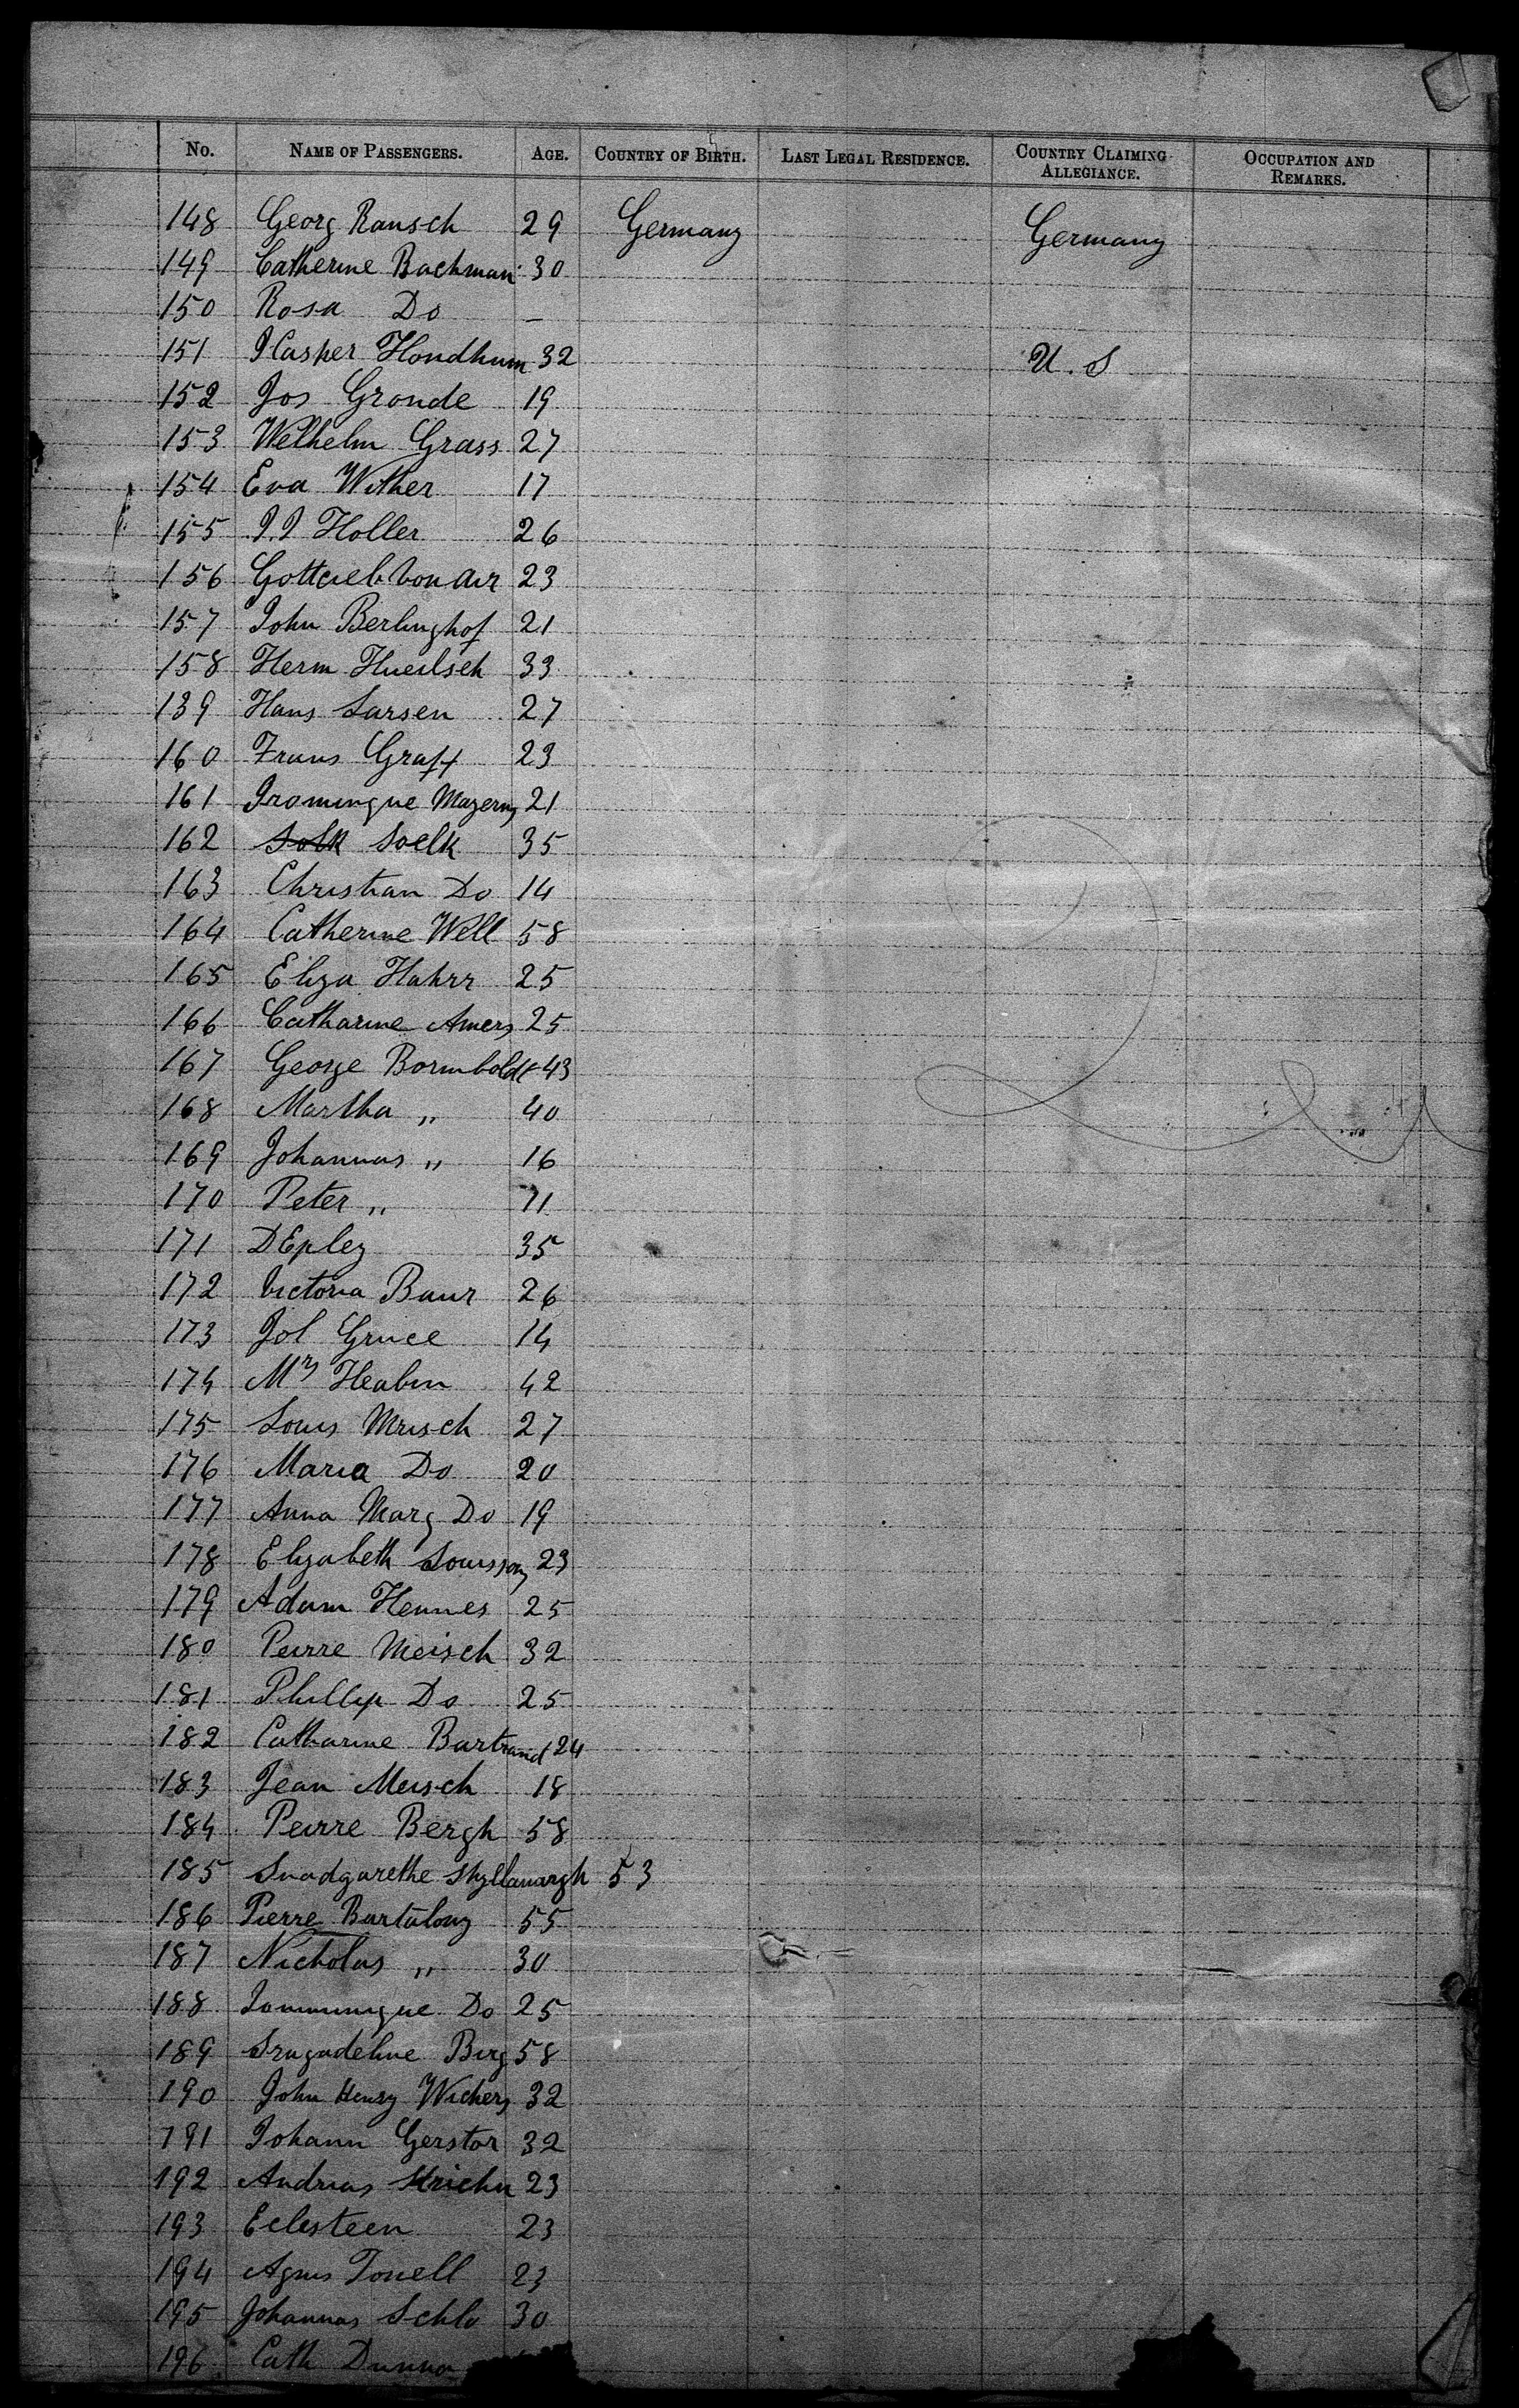 No. NAME OF PASSENGERS. AGE. COUNTRY OF BIRTH. LAST LEGAL RESIDENCE. COUNTRY CLAIMING ALLEGIANCE. OCCUPATION AND REMARKS.
148 Georg Rausch 29 Germany Germany
149 Catherine Bachman 30
150 Rosa Do —
151 Kasper Hondhum 32 U. S
152 Jos Gronde 19
153 Welhelm Grass 27
154 Eva Wither 17
155 J. J Holler 26
156 Gottlieb Von Air 23
157 John Berlinghof 21
158 Herm 33
139 Hans Larsen 27
160 Frans Graff 23
161 21
162 Solk Soelk 35
163 Christian Do 14
164 Catherine Well 58
165 Eliza Hahrr 25
166 Catharine Amers 25
167 George Bormboldt 43
168 Martha „ 40
169 Johannas „ 16
170 Peter „ 11
171 D Epley 35
172 Victoria Baur 26
173 Jol Gruce 14
174 Mrs Heabin 42
175 Louis Mrisch 27
176 Maria Do 20
177 Anna Marg Do 19
178 Elizabeth 23
179 Adam Hennes 25
180 Peirre Meisch 32
181 Phillip Do 25
182 Catharine Bartrand 24
183 Jean Meisch 18
184 Peirre Bergh 58
185 53
186 Pierre Bartalony 55
187 Nicholas „ 30
188 Do 25
189 Berg 58
190 John Henry Wichers 32
191 Johann Gerstor 32
192 Andreas 23
193 Eclesteen 23
194 Agnes Tonell 23
195 Johannas Schlo 30
196 Cath Dunna